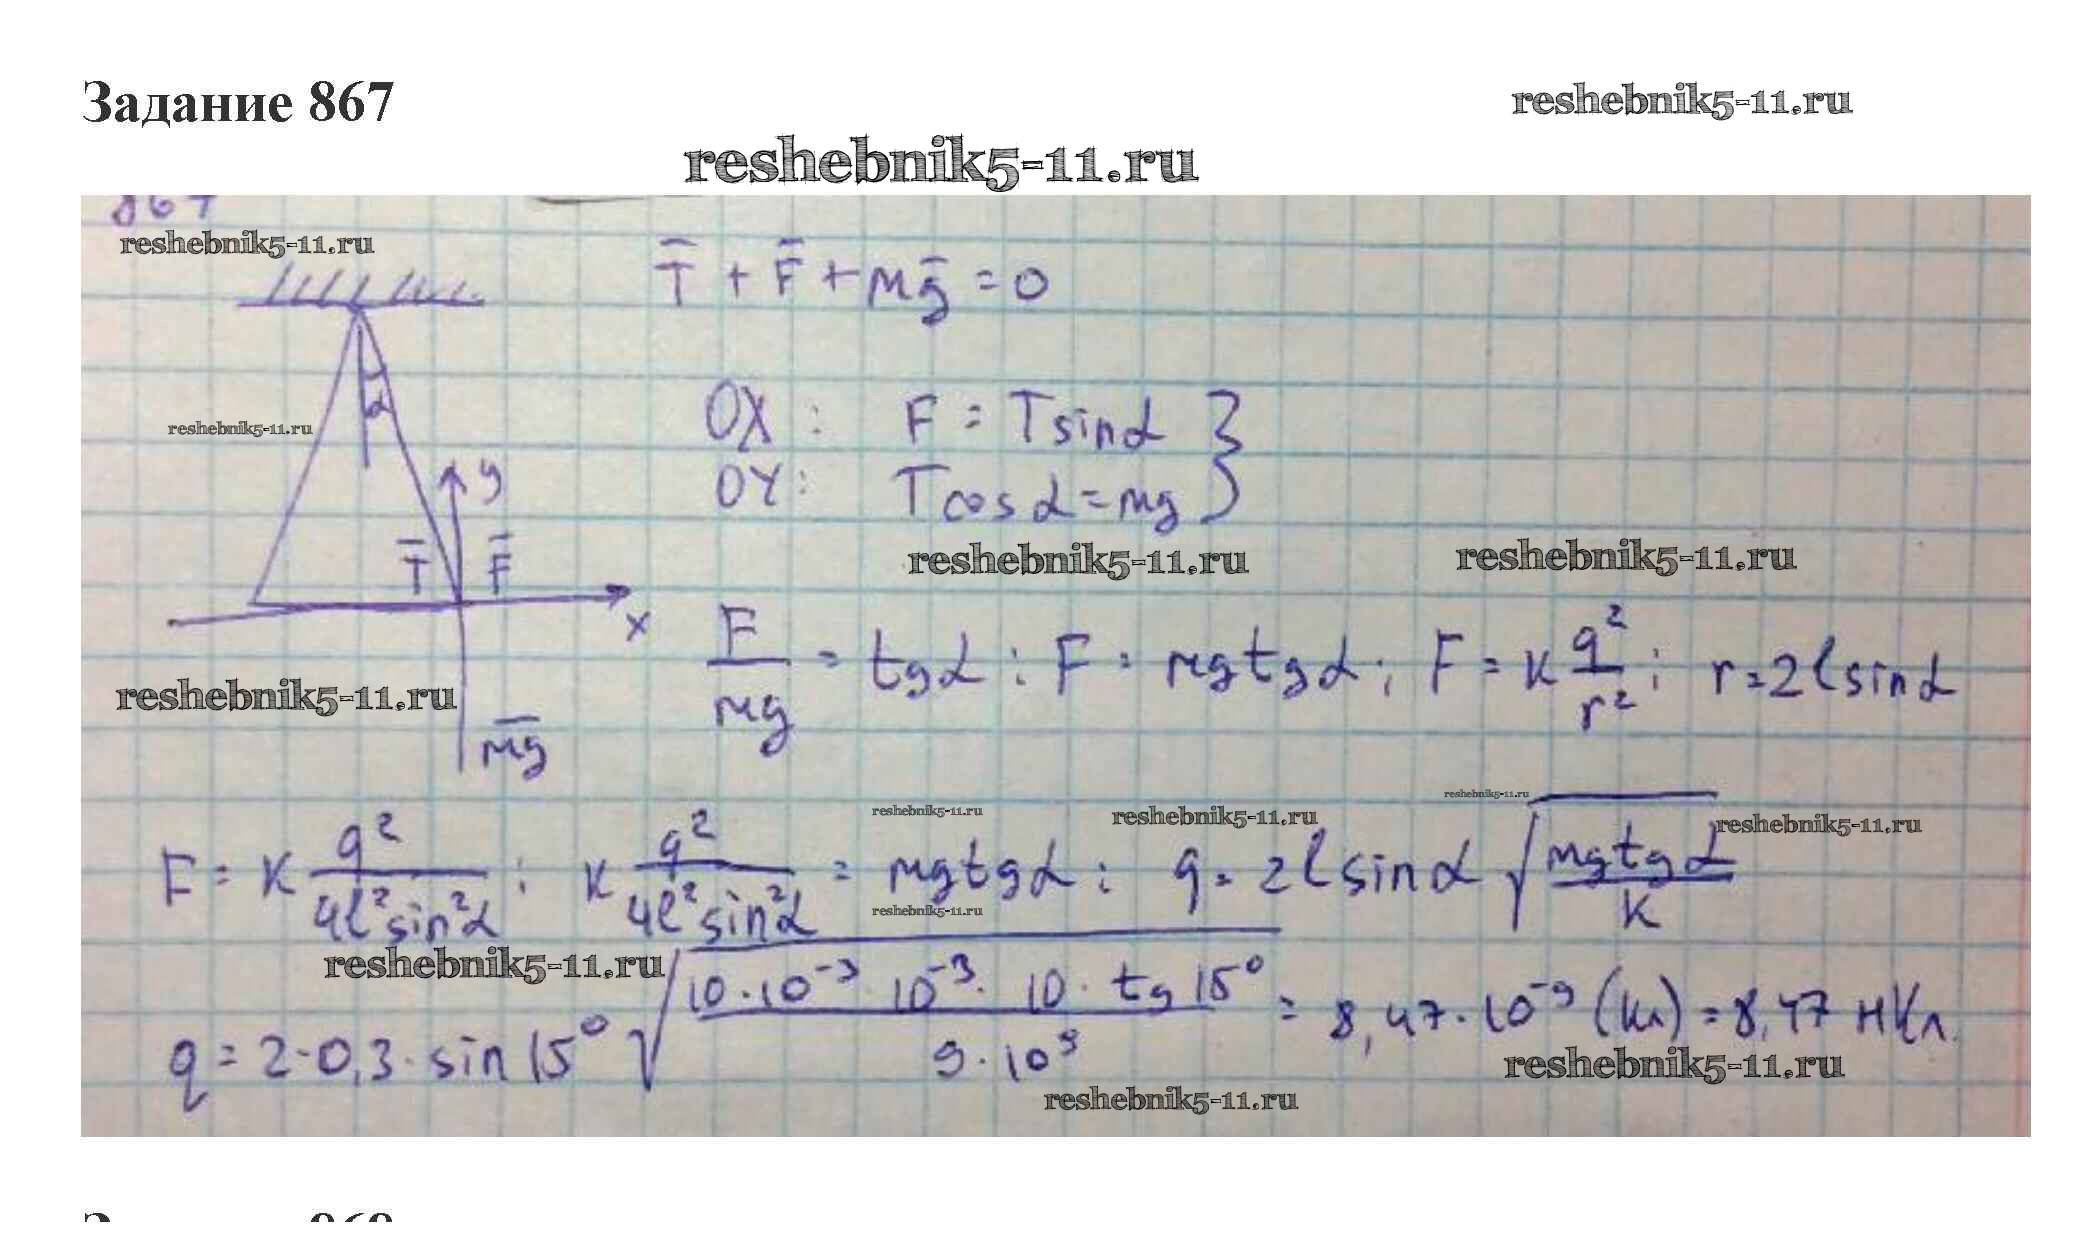 Задание 867
reshebnik5-11.ru
reshebnik5-11.ru
867
reshebnik5-11.ru
T̄ + F̄ + mḡ = 0
α
reshebnik5-11.ru
OX : F = T sin α }
OY : T cos α = mg }
y
T̄ F̄
x
m̄ḡ
reshebnik5-11.ru
reshebnik5-11.ru
F/mg = tg α ; F = mg tg α ; F = k q²/r² ; r = 2l sin α
reshebnik5-11.ru
reshebnik5-11.ru
reshebnik5-11.ru
reshebnik5-11.ru
reshebnik5-11.ru
F = k q²/4l² sin² α ; k q²/4l² sin² α = mg tg α ; q = 2l sin α √(mg tg α/k)
reshebnik5-11.ru
reshebnik5-11.ru
q = 2·0,3· sin 15° √(10·10⁻³ · 10⁻³ · 10 · tg 15°/9·10⁹) = 8,47·10⁻⁹ (Кл) = 8,47 нКл.
reshebnik5-11.ru
reshebnik5-11.ru